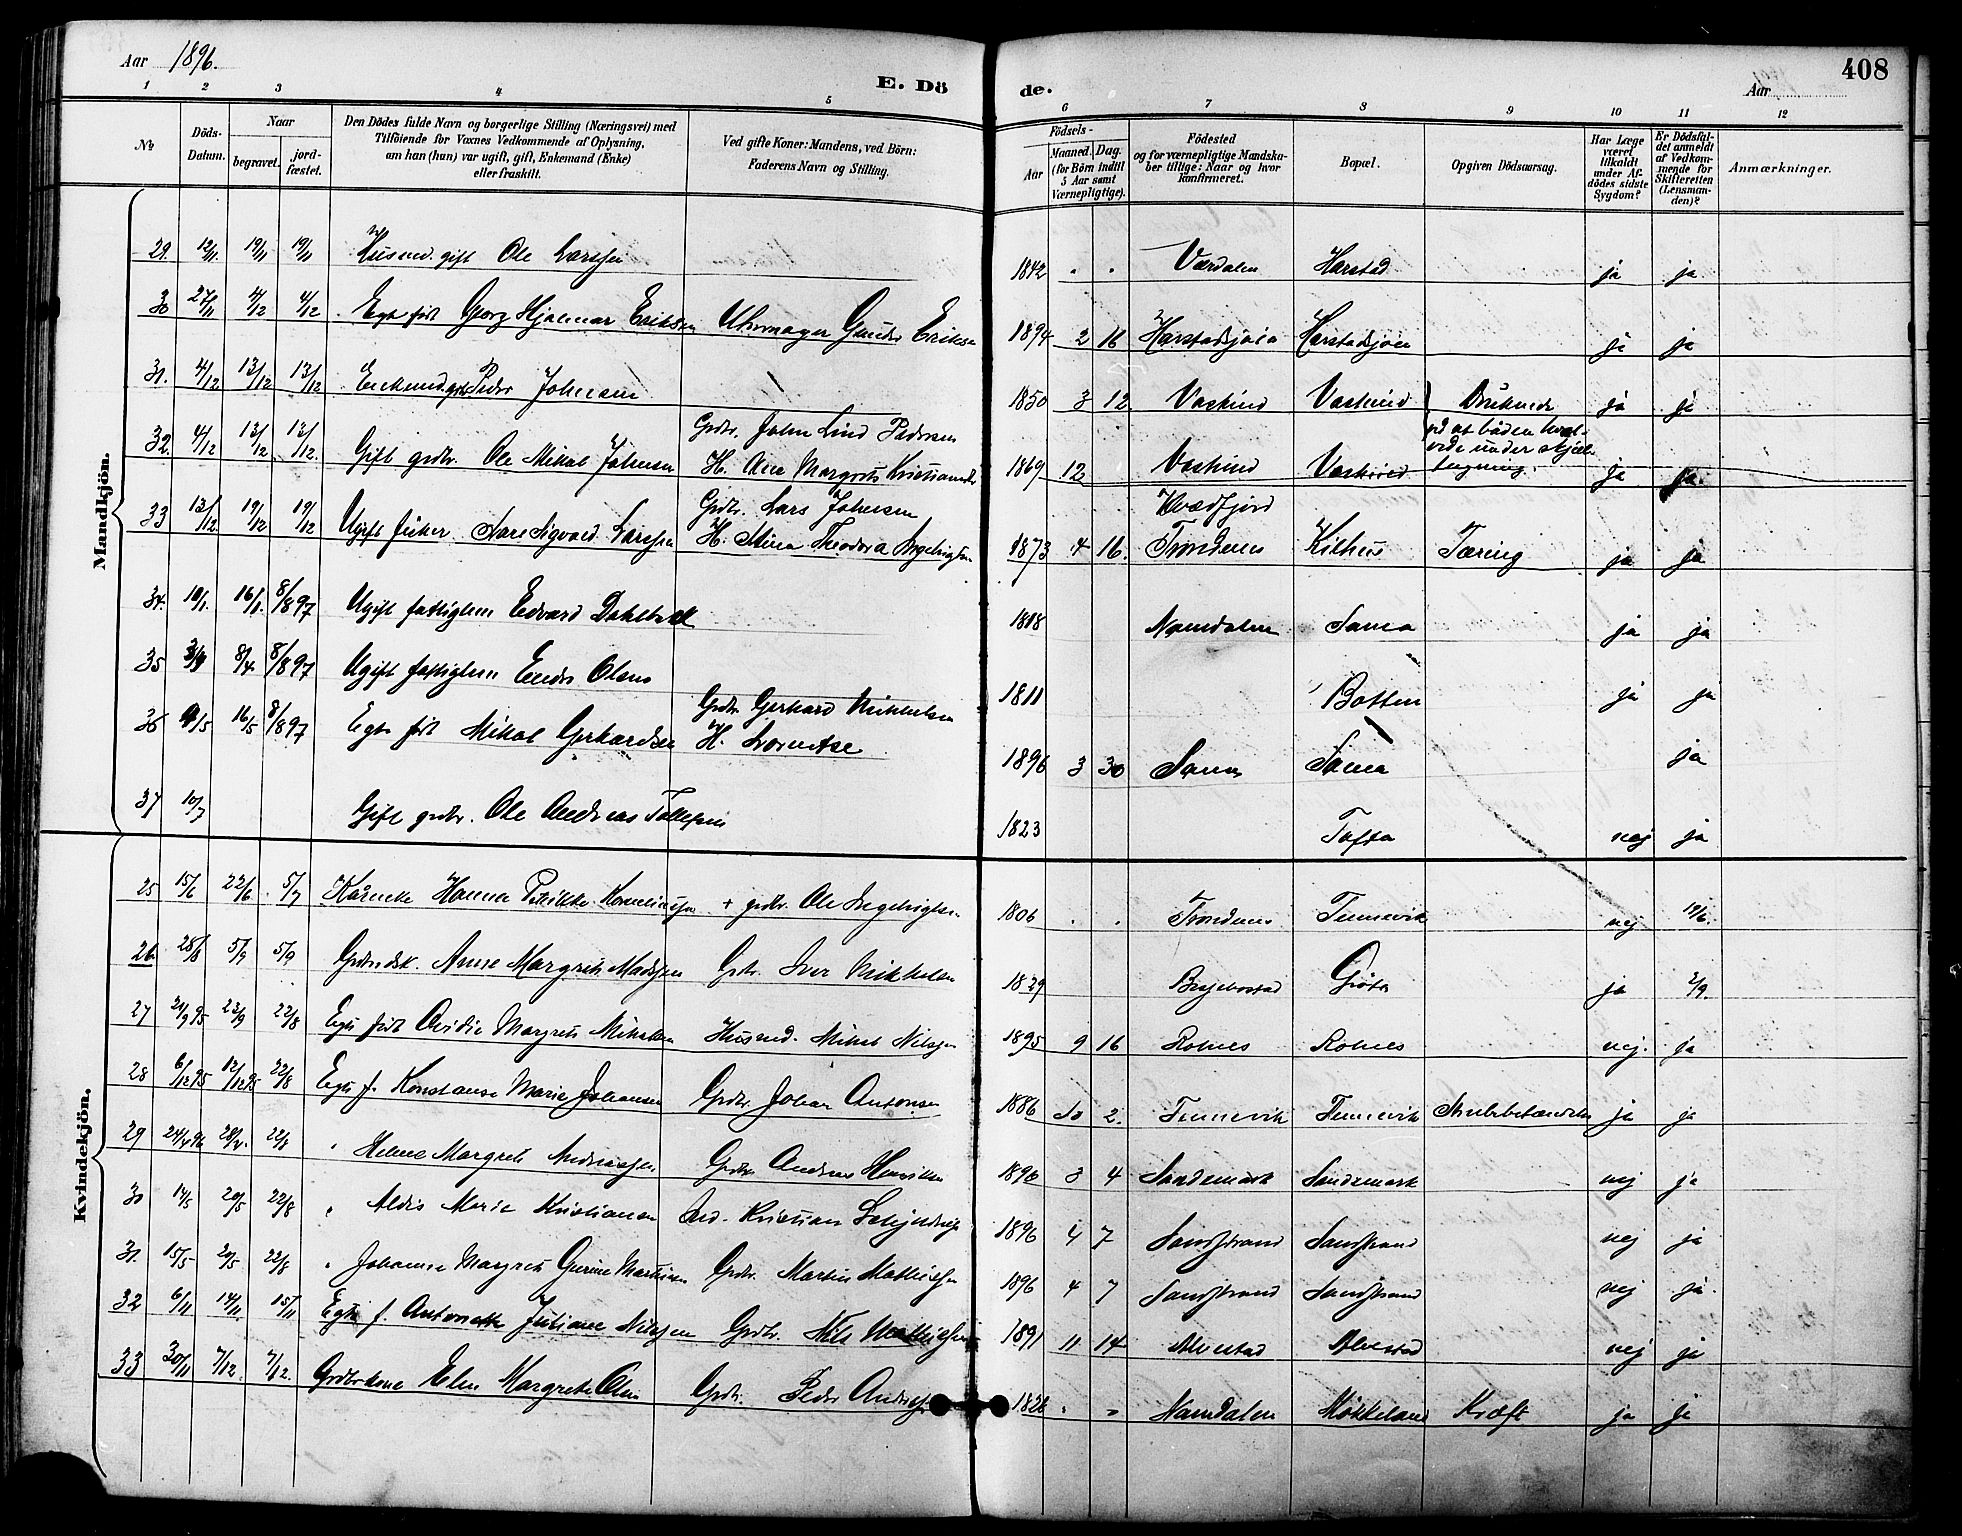 Aar 1896.
E. Dö de.
Aar
408
1 2 3 4 5 6 7 8 9 10 11 12
№
Döds-Datum.
Naar
begravet.
jord-fæstet.
Den Dödes fulde Navn og borgerlige Stilling (Næringsvei) med
Tilföiende for Voxnes Vedkommende af Oplysning,
om han (hun) var ugift, gift, Enkemand (Enke)
eller fraskilt.
Ved gifte Koner: Mandens, ved Börn:
Faderens Navn og Stilling.
Födsels-
Aar
Maaned. Dag.
(for Börn indtil
5 Aar samt
Værnepligtige).
Födested
og for værnepligtige Mandska-
ber tillige: Naar og hvor
konfirmeret.
Bopæl.
Opgiven Dödsaarsag.
Har Læge
været
tilkaldt
under Af-
dödes sidste
Sygdom?
Er Dödsfal-
det anmeldt
af Vedkom-
mende for
Skifteretten
(Lensman-
den)?
Anmærkninger.
Mandkjön.
29. 12/11 19/11 19/11 Husmd. gift Ole Larssen 1842 " " Værdalen Harstad ja ja
30 27/11 4/12 4/12 Egte født Georg Hjalmar Eriksen Uhrmager Eriksen 1894 2 16 Harstadsjøen Harstadsjøen ja ja
31. 4/12 13/12 13/12 Enkemd. Peder Johnsen 1850 3 12 Druknede ja ja
32. 4/12 13/12 13/12. Gift grdbr. Ole Mikal Johnsen Grdbr. John Lind Pedersen
H. Ane Margrete 1869 12 på at båden
under ja ja.
33 13/12 19/12 19/12 Ugift fisker Sigvard Larssen Grdbr. Lars Johnsen
H. Mina Theodora 1873 4 16. Kvædfjord
Trondenes Kilhus Tæring ja ja
34. 10/1. 16/1. 8/8 97 Ugift fattiglem Edvard 1818 Namdalen Sama ja ja
35 8/4 8/8 97 Ugift fattiglem Olsen 1811 Botten ja ja
36 9/5 16/5 8/8 97 Egte født Mikal Gerhardsen Grdbr Gerhard Mikkelsen
H. 1896 3 30 Sama Sama ja
37 10/7 Gift grdbr. Ole Andreas Tollefsen 1823 Tofta nej ja
Kvindekjön.
25 15/6 22/6 5/7 Hanna + grdbr. Ole Ingebrigtsen 1806 " " Trondenes Tennevik nej 19/6.
26. 28/8 5/9 5/9 Anne Margrete Madssen Grdbr. Iver Mikkelsen 1829 ja 2/9.
27 21/9 95 23/9 22/8 Egte født Margrete Mikalsen Husmd. Mikal Nilssen 1895 9 16 Rolnes Rolnes nej. ja
28 6/12 95 12/12 95 22/8 Egte f. Konstanse Marie Johansen Grdbr. Johan Antonsen 1886 10 2. Tennevik Tennevik ja ja
29 24/4 96 22/8 " Helene Margrete Andreassen Grdbr Andreas Henriksen 1896 3 4 Sandemark Sandemark nej ja
30 14/5 20/5 22/8 " Aldis Marie Kristiansen Kristian 1896 4 7 Sandstrand Sandstrand nej ja
31. 15/5 20/5 22/8 " Johanne Margrete Martinsen Grdbr. Martin Mathissen 1896 4 7 Sandstrand Sandstrand nej ja.
32 6/11 14/11 15/11 Egte f. Antonette Juliane Nilssen Grdbr. Nils Mathissen 1891 11 14 Alvestad Alvestad nej ja
33 30/11 7/12. 7/12. Grdbrkone Elen Margrete Olsen Grdbr. Peder 1828 " " Namdalen Møkkeland Kræft ja ja